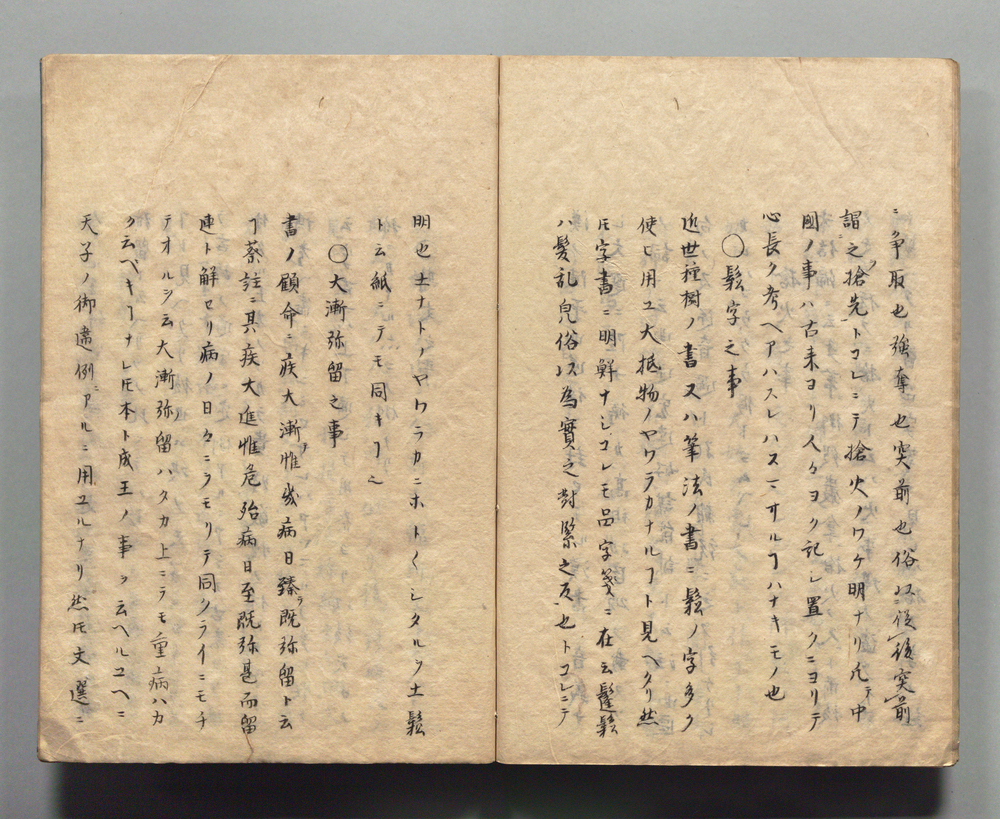 ニ争取也強奪也突前也俗以後後突前
謂之搶先トコレニテ搶火ノワケ明ナリ凡テ中
國ノ事ハ古来ヨリ人々ヨク記シ置クニヨリテ
心長ク考ヘアハスレハスマサルヿハナキモノ也
〇鬆字之事
近世種樹ノ書又ハ筆法ノ書ニ鬆ノ字多ク
使ヒ用ユ大抵物ノヤワラカナルヿト見ヘタリ然
𪜈字書ニ明鮮ナシコレモ品字箋ニ在云鬔鬆
ハ髪乱皃俗以為實之對緊之反也トコレニテ
明也土ナトノヤワラカニホト〱シタルヲ土鬆
ト云紙ニテモ同キヿ也
〇大漸弥留之事
書ノ顧命ニ疾大漸惟幾病日臻既弥留ト云
ヿ蔡註ニ其疾大進惟危殆病日至既弥甚而留
連ト解セリ病ノ日々ニヲモリテ同クライニモチ
テオルヲ云大漸弥留ハタカ上ニヲモ重病ハカ
ク云ベキヿナレ𪜈本ト成王ノ事ヲ云ヘルユヘニ
天子ノ御違例ニアルニ用ユルナリ然𪜈文選ニ